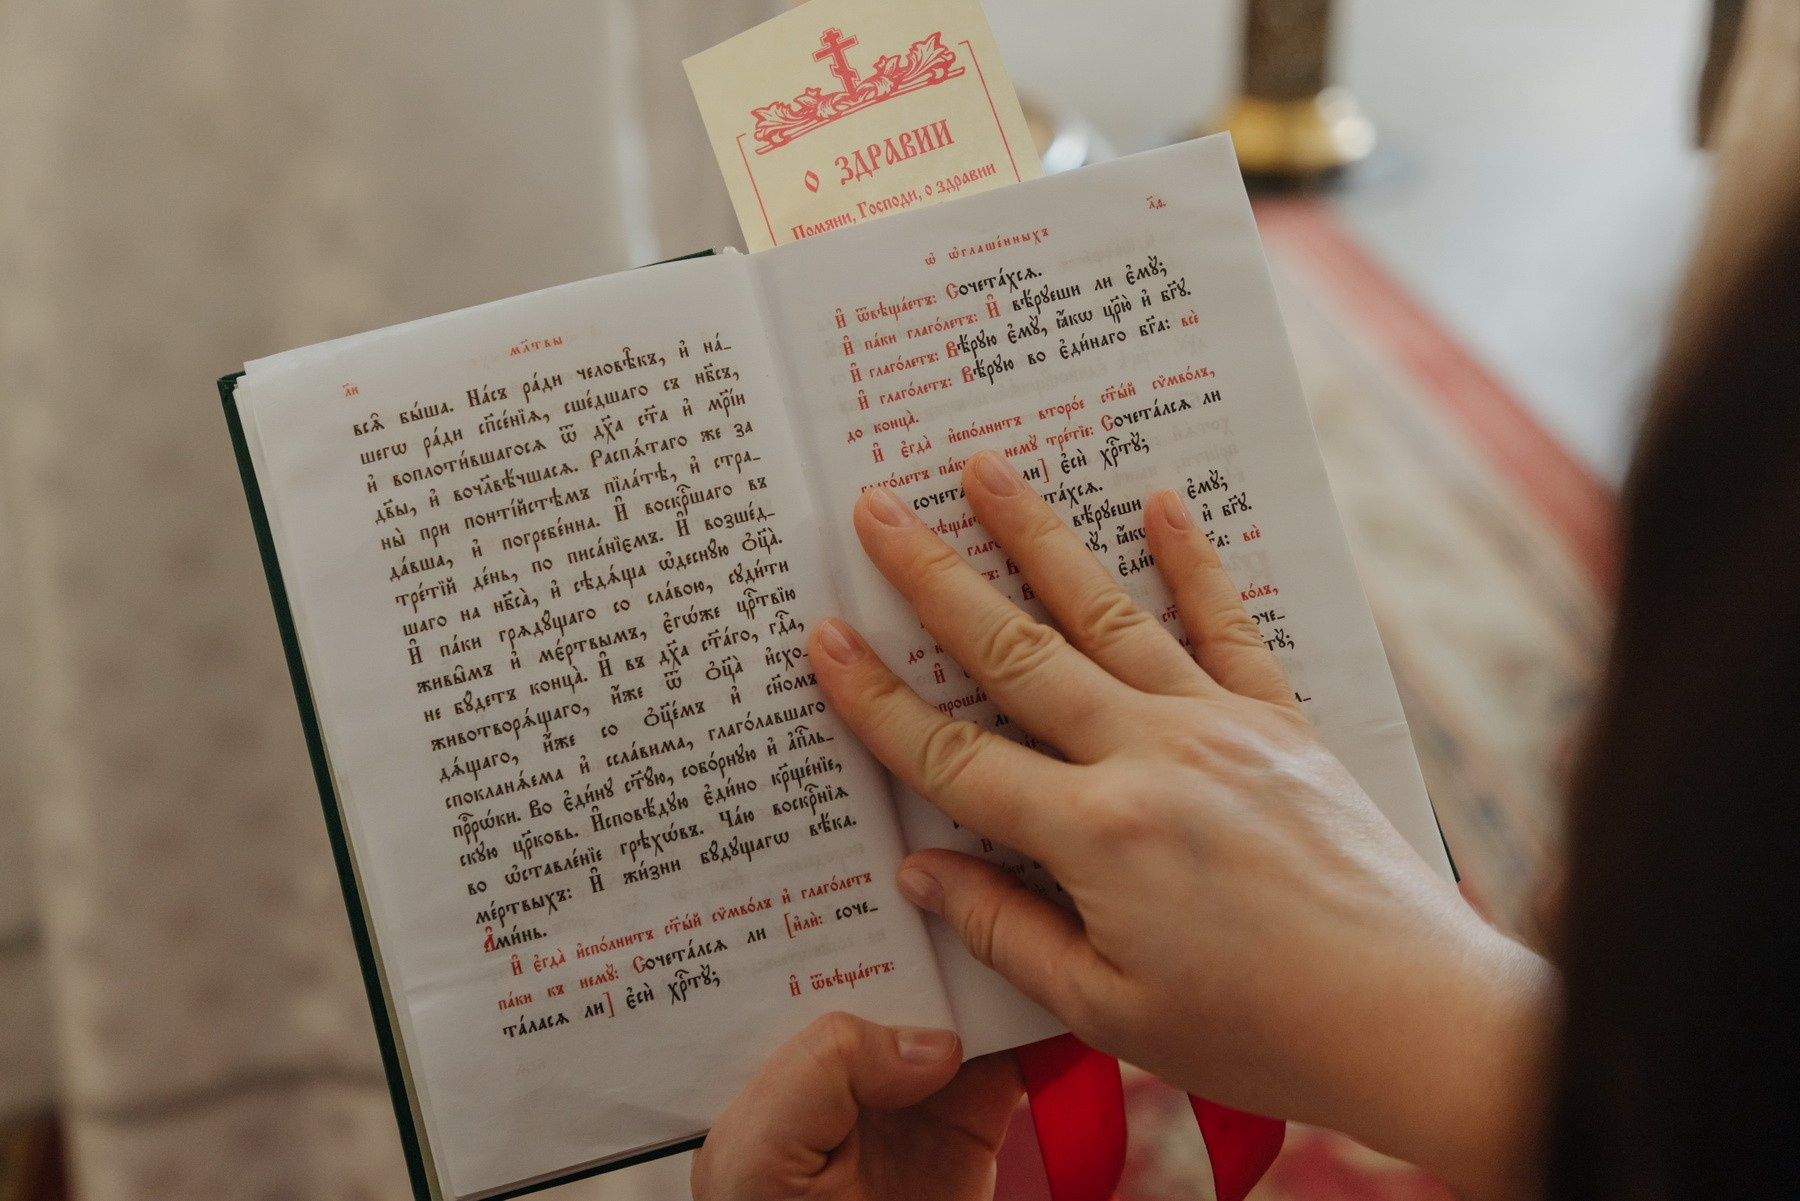 О ЗДРАВИИ
Помяни, Господи, о здравии
л҃и
мл҃твы
всѧ̑ бы́ша. На́съ ра́ди человѣ̑къ, и҆ на́-
шегѡ ра́ди сп҃се́нїѧ, сше́дшаго съ нб҃съ,
и҆ воплоти́вшагосѧ ѿ дх҃а ст҃а и҆ мр҃і́и
дв҃ы, и҆ вочл҃вѣ́чшасѧ. Распѧ́таго же за
ны̀ при понті́йстѣмъ пїла́тѣ, и҆ стра-
да́вша, и҆ погребе́нна. И҆ воскр҃сшаго въ
тре́тїй де́нь, по писа́нїємъ. И҆ возше́д-
шаго на нб҃са̀, и҆ сѣдѧ́ща ѡ҆десну́ю ѻ҆ц҃а̀.
И҆ па́ки грѧду́щаго со сла́вою, суди́ти
живы̑мъ и҆ мє́ртвымъ, є҆гѡ́же црⷭ҇твїю
не бу́детъ конца̀. И҆ въ дх҃а ст҃а́го, гдⷭ҇а,
животворѧ́щаго, и҆́же ѿ ѻ҆ц҃а̀ и҆схо-
дѧ́щаго, и҆́же со ѻ҆ц҃е́мъ и҆ сн҃омъ
спокланѧ́ема и҆ ссла́вима, глаго́лавшаго
прⷪ҇ро́ки. Во є҆ди́ну ст҃у́ю, собо́рную и҆ а҆пⷭ҇ль-
скую цр҃ковь. И҆сповѣ́дую є҆ди́но кр҃ще́нїе,
во ѡ҆ставле́нїе грѣхѡ́въ. Ча́ю воскрⷭ҇нїѧ
ме́ртвыхъ: И҆ жи́зни бу́дущагѡ вѣ́ка.
А҆ми́нь.
И҆ є҆гда̀ и҆спо́лнитъ ст҃ы́й сѷмво́лъ и҆ глаго́летъ
па́ки къ нему̀: Сочета́лсѧ ли [и҆лѝ: соче-
та́ласѧ ли] є҆сѝ хрⷭ҇ту̀;
И҆ ѿвѣща́етъ:
л҃ѳ
ѡ҆ ѡ҆глаше́нныхъ
И҆ ѿвѣща́етъ: Сочета́хсѧ.
И҆ па́ки глаго́летъ: И҆ вѣ́руеши ли є҆му̀;
И҆ глаго́летъ: Вѣ́рую є҆му̀, ꙗ҆́кѡ цр҃ю̀ и҆ бг҃у.
И҆ глаго́летъ: Вѣ́рую во є҆ди́наго бг҃а: всѐ
до конца̀.
И҆ є҆гда̀ и҆спо́лнитъ второ́е ст҃ы́й сѷмво́лъ,
глаго́летъ па́ки нему̀ тре́тїе: Сочета́лсѧ ли
сочета ли] є҆сѝ хрⷭ҇ту̀;
та́хсѧ.
вѣ́руеши є҆му̀;
ꙗ҆́кѡ и҆ бг҃у.
є҆ди́н г҃а: всѐ
во́лъ,
до соче-
ту̀;